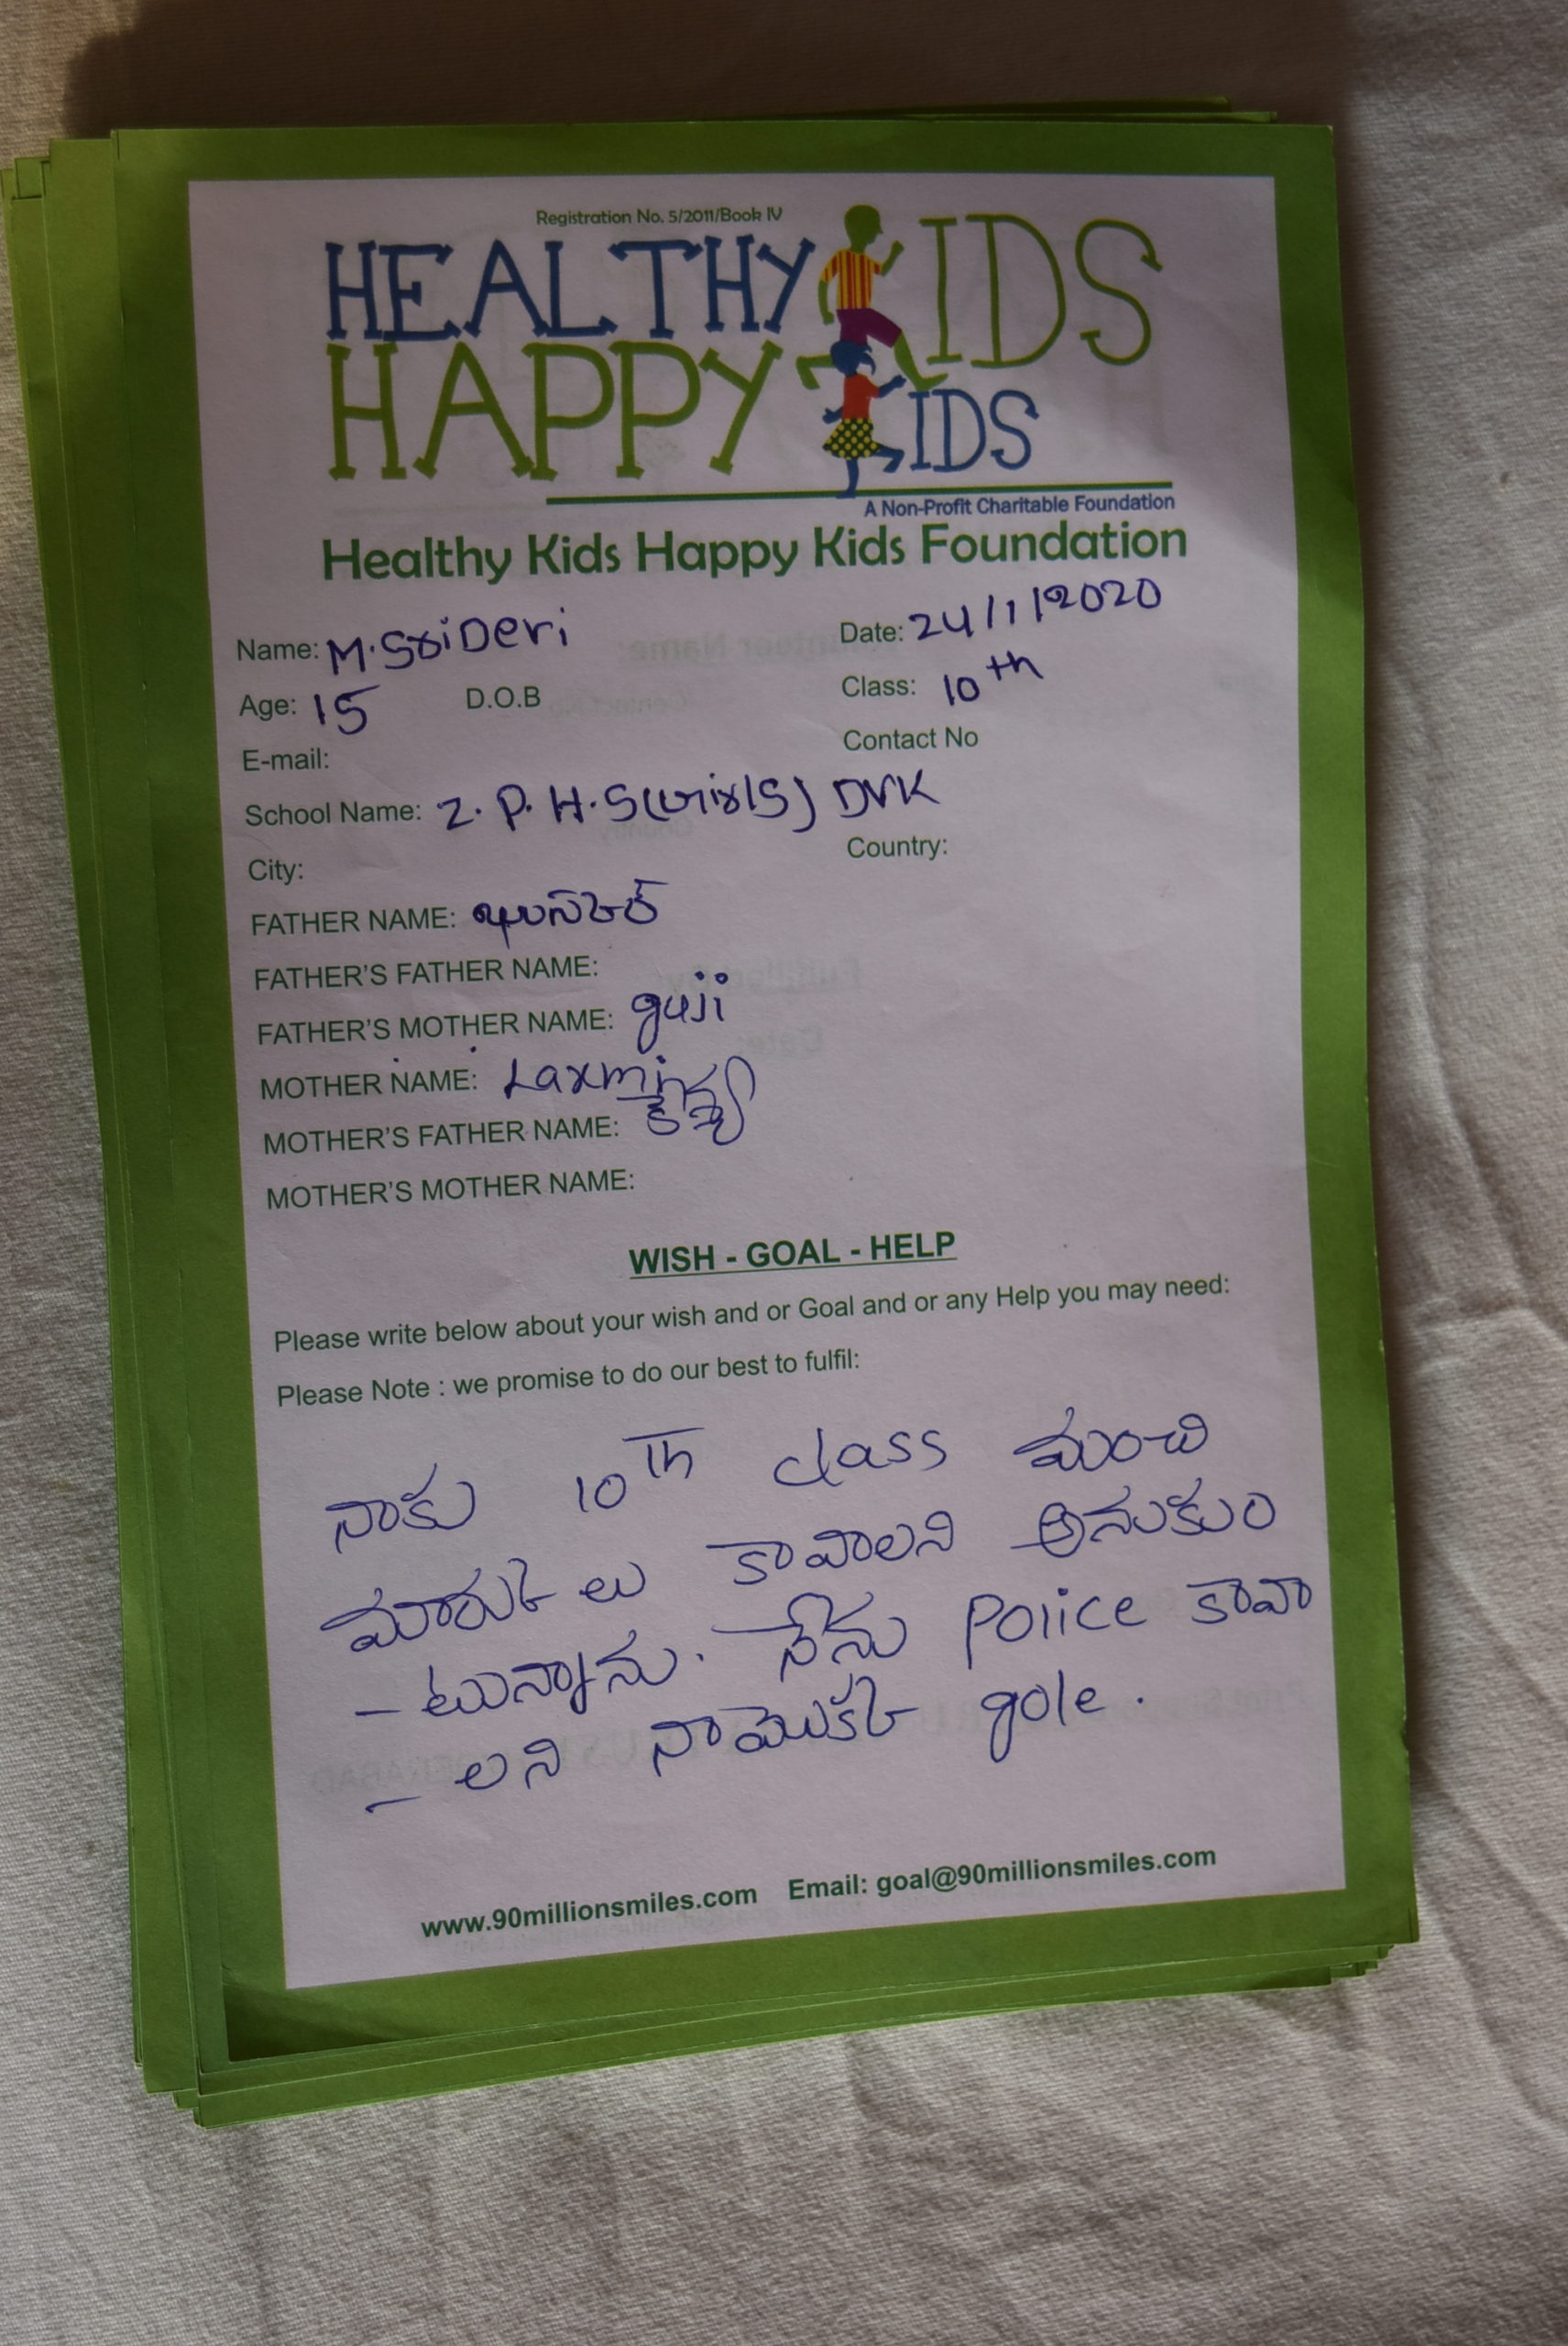 Registration No. 5/2011/Book IV
HEALTHY KIDS
HAPPY KIDS
A Non-Profit Charitable Foundation
Healthy Kids Happy Kids Foundation
Name: M.SriDevi Date: 24/1/2020
Age: 15 D.O.B Class: 10th
E-mail: Contact No
School Name: Z.P.H.S(Girls) DVK
City: Country:
FATHER NAME:
FATHER'S FATHER NAME:
FATHER'S MOTHER NAME: guji
MOTHER NAME: Laxmi
MOTHER'S FATHER NAME:
MOTHER'S MOTHER NAME:
WISH - GOAL - HELP
Please write below about your wish and or Goal and or any Help you may need:
Please Note : we promise to do our best to fulfil:
నాకు 10th class మంచి
మార్కులు కావాలని అనుకుం
- టున్నాను. నేను Police కావా
- లని నామొక్క gole.
www.90millionsmiles.com Email: goal@90millionsmiles.com